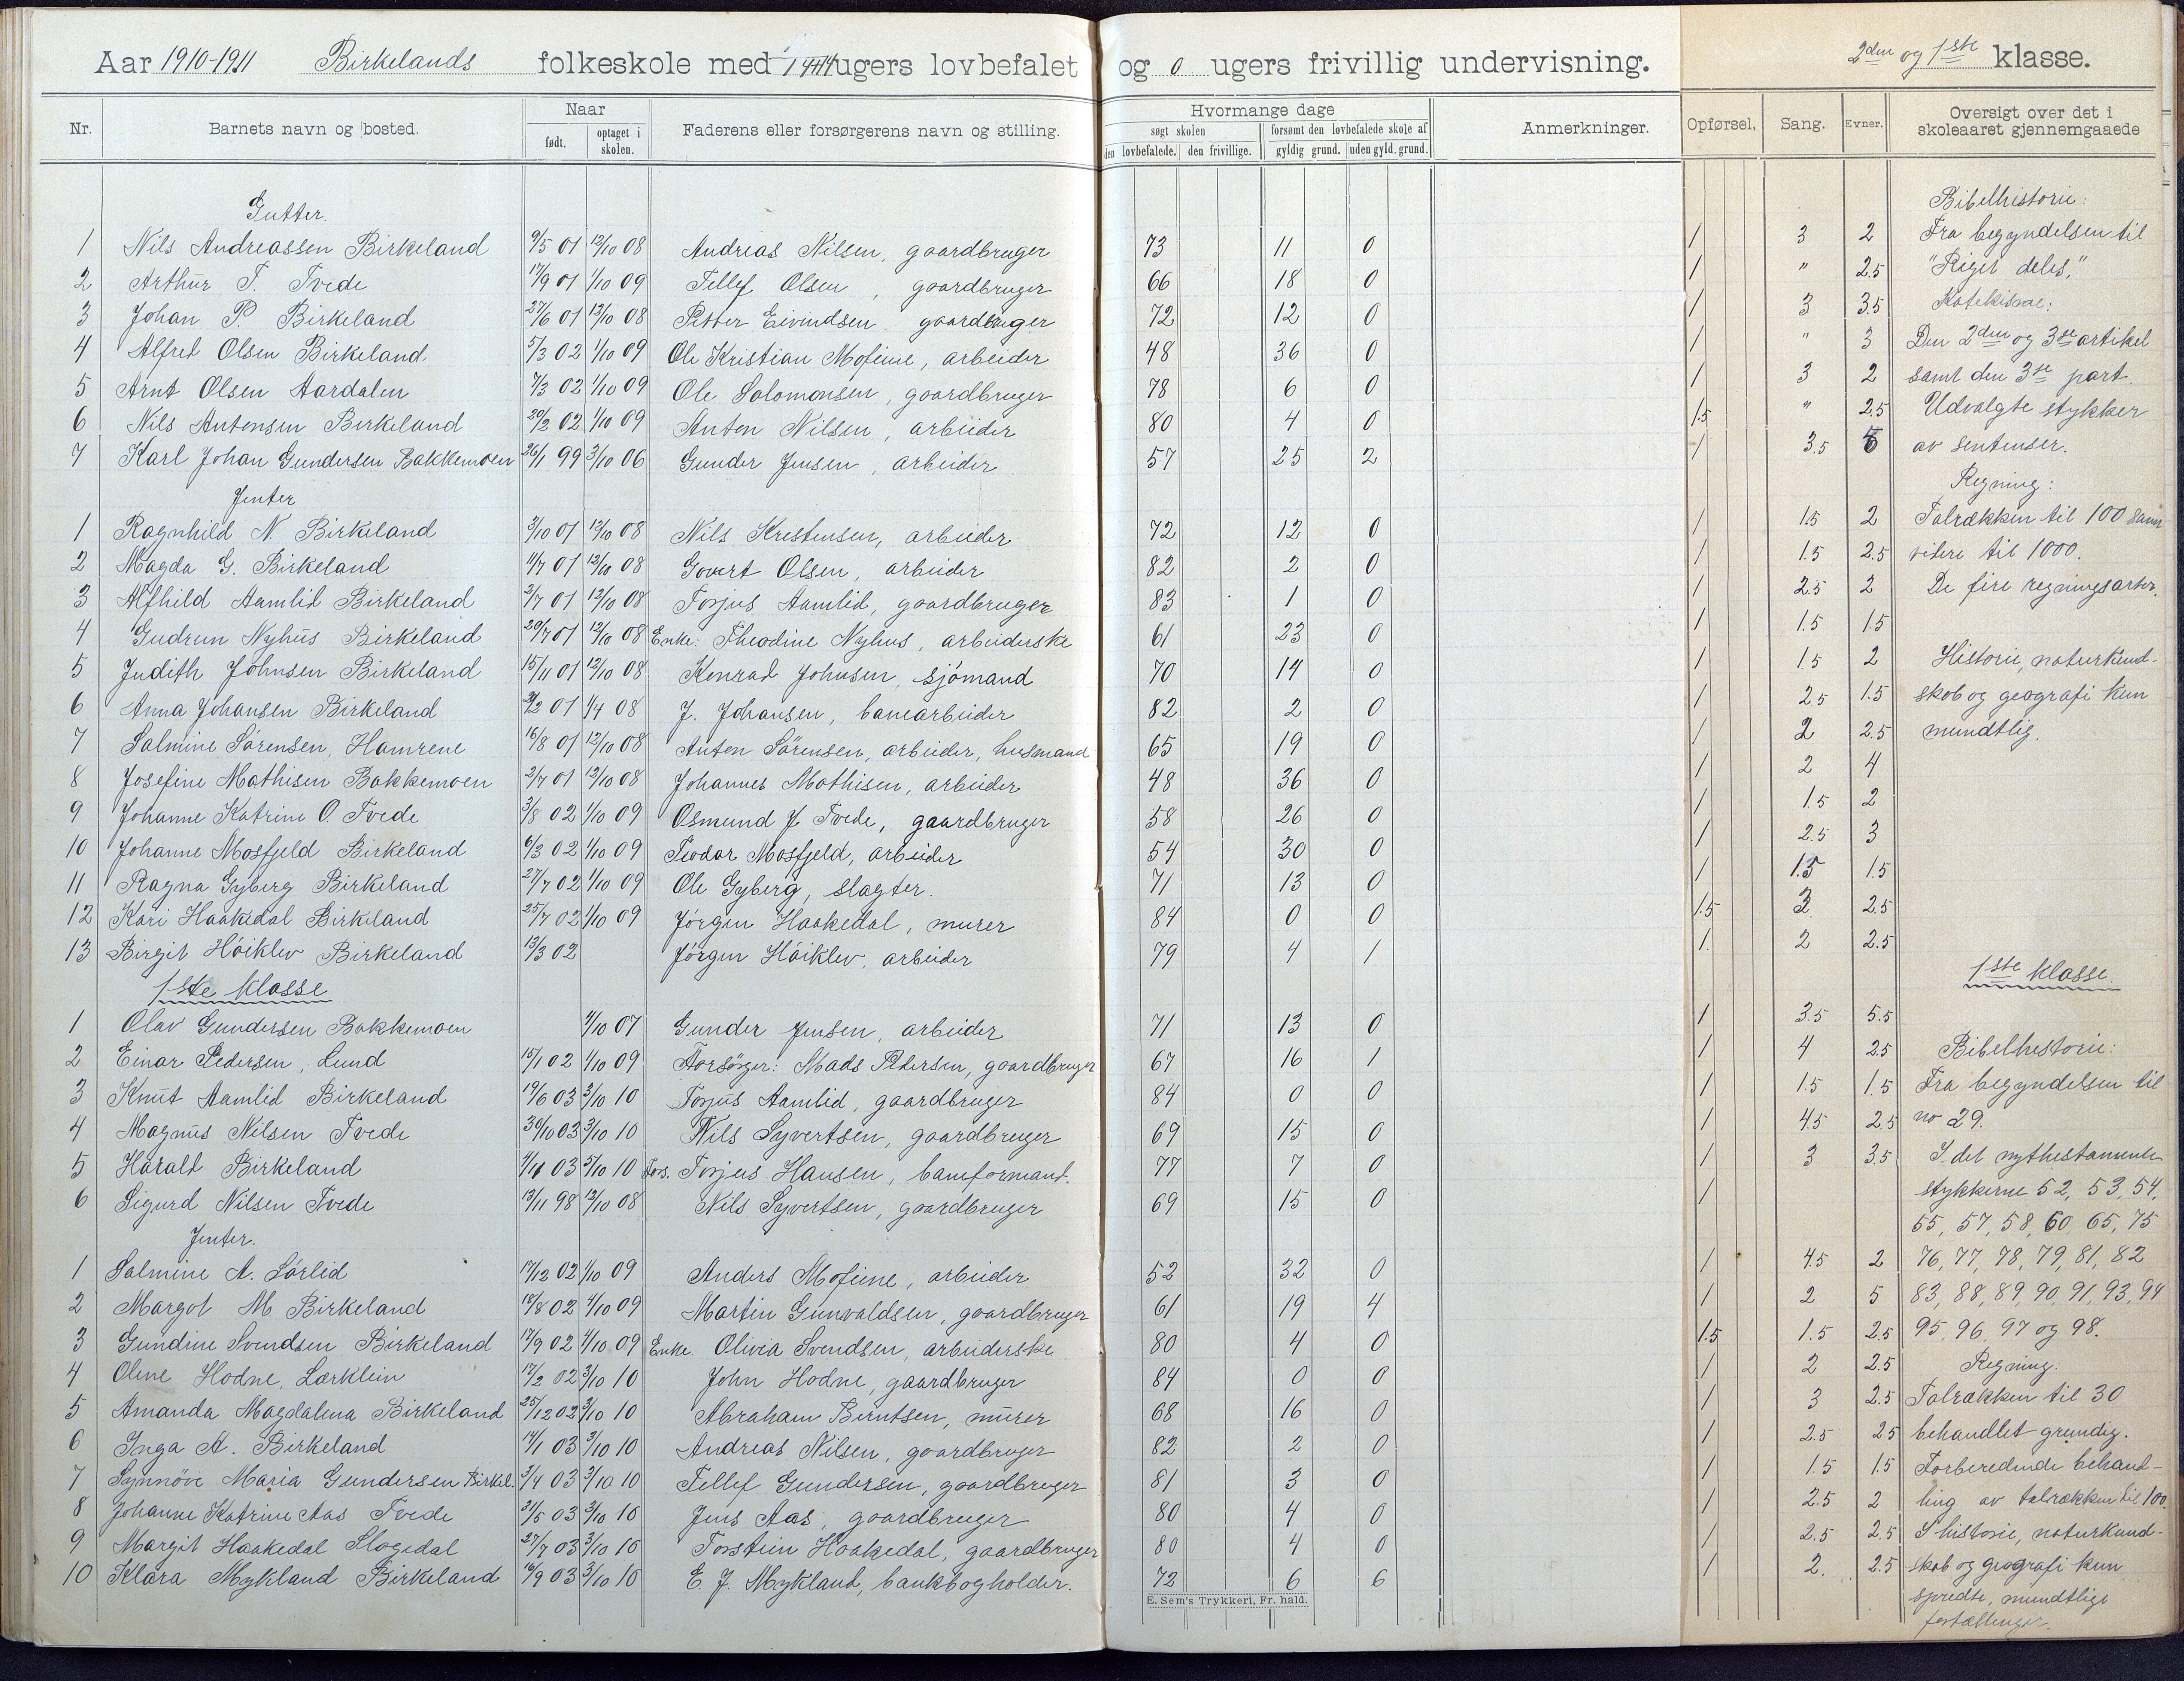 Aar 1910-1911 Birkelands folkeskole med 14 ugers lovbefalet og 0 ugers frivillig undervisning. 2den og 1ste klasse.
Nr. Barnets navn og bosted. Naar født. optaget i skolen. Faderens eller forsørgerens navn og stilling. Hvormange dage søgt skolen den lovbefalede. den frivillige. forsømt den lovbefalede skole af gyldig grund. uden gyld. grund. Anmerkninger. Opførsel. Sang. Evner. Oversigt over det i skoleaaret gjennemgaaede
Gutter. Bibelhistorie:
1 Nils Andreassen Birkeland 9/5 01 12/10 08 Andreas Nilsen, gaardbruger 73 11 0 1 3 2 Fra begyndelsen til
2 Arthur T. Tvede 17/9 01 1/10 09 Tellef Olsen, gaardbruger 66 18 0 1 " 2.5 "Riget deles,"
3 Johan P. Birkeland 27/6 01 12/10 08 Petter Eivindsen, gaardbruger 72 12 0 1 3 3.5 Katekisme:
4 Alfred Olsen Birkeland 5/3 02 1/10 09 Ole Kristian Mofeine, arbeider 48 36 0 1 " 3 Den 2den og 3die artikel
5 Arnt Olsen Aardalen 7/3 02 1/10 09 Ole Salomonsen, gaardbruger 78 6 0 1 3 2 samt den 3die part.
6 Nils Antonsen Birkeland 20/2 02 1/10 09 Anton Nilsen, arbeider 80 4 0 1.5 " 2.5 Udvalgte stykker
7 Karl Johan Gundersen Bakkemoen 26/1 99 3/10 06 Gunder Jensen, arbeider 57 25 2 1 3.5 5 av sentenser.
Jenter Regning:
1 Ragnhild N. Birkeland 3/10 01 12/10 08 Nils Kristensen, arbeider 72 12 0 1 1.5 2 Talrækken til 100 samt
2 Magda G. Birkeland 11/7 01 12/10 08 Govert Olsen, arbeider 82 2 0 1 1.5 2.5 videre til 1000.
3 Alfhild Aamlid Birkeland 2/7 01 12/10 08 Torjus Aamlid, gaardbruger 83 1 0 1 2.5 2 De fire regningsarter.
4 Gudrun Nyhus Birkeland 20/7 01 12/10 08 Enke: Theodine Nyhus, arbeiderske 61 23 0 1 1.5 1.5
5 Judith Johnsen Birkeland 15/11 01 12/10 08 Konrad Johnsen, sjömand 70 14 0 1 1.5 2 Historie, naturkund-
6 Anna Johansen Birkeland 2/2 01 1/4 08 J. Johansen, banearbeider 82 2 0 1 2.5 1.5 skab og geografi kun
7 Salmine Sörensen, Hamrene 16/8 01 12/10 08 Anton Sörensen, arbeider, husmand 65 19 0 1 2 2.5 mundtlig.
8 Josefine Mathisen Bakkemoen 2/7 01 12/10 08 Johannes Mathisen, arbeider 48 36 0 1 2 4
9 Johanne Katrine O. Tvede 3/8 02 1/10 09 Osmund J. Tvede, gaardbruger 58 26 0 1 1.5 2
10 Johanne Mosfjeld Birkeland 6/3 02 1/10 09 Teodor Mosfjeld, arbeider 54 30 0 1 2.5 3
11 Ragna Gyberg Birkeland 27/7 02 1/10 09 Ole Gyberg, slagter. 71 13 0 1 1.5 1.5
12 Kari Haakedal Birkeland 25/7 02 1/10 09 Jörgen Haakedal, murer 84 0 0 1.5 2.5
13 Birgit Höiklev Birkeland 13/3 02 Jörgen Höiklev, arbeider 79 4 1 1. 2 2.5
1ste klasse 1ste klasse
1 Olav Gundersen Bakkemoen 4/10 07 Gunder Jensen, arbeider 71 13 0 1 3.5 5.5
2 Einar Pedersen, Lund 15/1 02 1/10 09 Forsörger: Mads Pedersen, gaardbruger 67 16 1 1 4 2.5 Bibelhistorie:
3 Knut Aamlid Birkeland 19/6 03 3/10 10 Torjus Aamlid, gaardbruger 84 0 0 1 1.5 1.5 Fra begyndelsen til
4 Magnus Nilsen Tvede 30/10 03 3/10 10 Nils Syvertsen, gaardbruger 69 15 0 1 4.5 2.5 no 29.
5 Harald Birkeland 03 3/10 10 Fors. Torjus Hansen, baneformand. 77 7 0 1 3 3.5 I det nythestamente
6 Sigurd Nilsen Tvede 13/11 98 12/10 08 Nils Syvertsen, gaardbruger 69 15 0 1 stykkerne 52, 53, 54,
Jenter. 55, 57, 58, 60, 65, 75
1 Salmine A. Lörlid 17/12 02 1/10 09 Anders Mofeine, arbeider 52 32 0 1 4.5 2 76, 77, 78, 79, 81, 82
2 Margot M. Birkeland 18/8 02 4/10 09 Martin Gunvaldsen, gaardbruger 61 19 4 1 2 5 83, 88, 89, 90, 91, 93, 94
3 Gundine Svendsen Birkeland 17/9 02 4/10 09 Enke Olivia Svendsen, arbeiderske 80 4 0 1.5 1.5 2.5 95, 96, 97 og 98.
4 Olene Hodne, Lærklein 17/2 02 3/10 10 John Hodne, gaardbruger 84 0 0 1 2 2.5 Regning:
5 Amanda Magdalena Birkeland 25/12 02 3/10 10 Abraham Berntsen, murer 68 16 0 1 3 2.5 Talrækken til 30
6 Inga A. Birkeland 14/1 03 3/10 10 Andreas Nilsen, gaardbruger 82 2 0 1 2.5 2.5 behandlet grundig.
7 Synnöve Maria Gundersen Birkel. 3/4 03 3/10 10 Tellef Gundersen, gaardbruger 81 3 0 1 1.5 1.5 Forberedende behand-
8 Johanne Katrine Aas Tvede 31/5 03 3/10 10 Jens Aas, gaardbruger 80 4 0 1 2.5 2 ling av talrækken til 100.
9 Margit Haakedal Slogedal 27/7 03 3/10 10 Torstein Haakedal, gaardbruger 80 4 0 1 2.5 2.5 I historie, naturkund-
10 Klara Mykland Birkeland 16/9 03 3/10 10 E. J. Mykland, bankbogholder. 72 6 6 1 2. 2.5 skab og geografi kun
E. Sem's Trykkeri, Fr. hald. spredte, mundtlige
fortællinger.